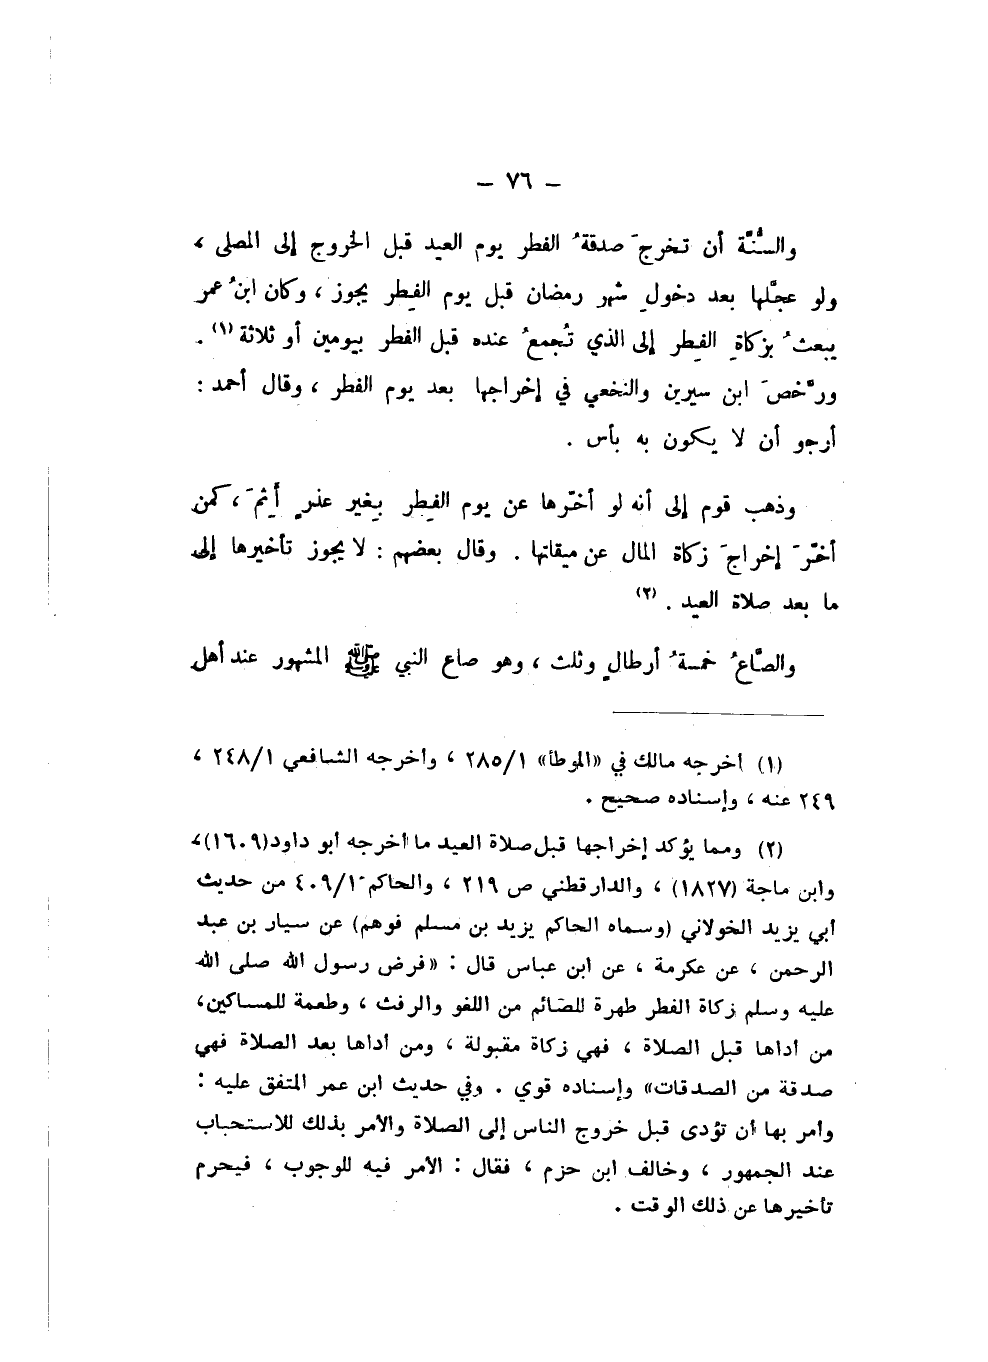 – ٧٦ –
والسُّنَّة أن تخرجَ صدقةُ الفطر يوم العيد قبل الخروج إلى المصلى ،
ولو عجَّلها بعد دخولِ شهر رمضان قبل يوم الفِطر يجوز ، وكان ابنُ عمر
يبعثُ بزكاةِ الفِطر إلى الذي تُجمعُ عنده قبل الفطر بيومين أو ثلاثة (١) .
ورخَّصَ ابن سيرين والنخعي في إخراجها بعد يوم الفطر ، وقال أحمد :
أرجو أن لا يكون به بأس .
وذهب قوم إلى أنه لو أخّرها عن يوم الفِطر بغير عذرٍ أَثِمَ ، كمن
أخَّرَ إخراجَ زكاة المال عن ميقاتها . وقال بعضهم : لا يجوز تأخيرها إلى
ما بعد صلاة العيد . (٢)
والصَّاعُ خمسةُ أرطالٍ وثلث ، وهو صاع النبي ﷺ المشهور عند أهل
(١) أخرجه مالك في «الموطأ» ٢٨٥/١ ، وأخرجه الشافعي ٢٤٨/١ ،
٢٤٩ عنه ، وإسناده صحيح .
(٢) ومما يؤكد إخراجها قبل صلاة العيد ما أخرجه أبو داود (١٦٠٩) ،
وابن ماجة (١٨٢٧) ، والدارقطني ص ٢١٩ ، والحاكم ٤٠٩/١ من حديث
أبي يزيد الخولاني (وسماه الحاكم يزيد بن مسلم فوهم) عن سيار بن عبد
الرحمن ، عن عكرمة ، عن ابن عباس قال : «فرض رسول الله صلى الله
عليه وسلم زكاة الفطر طهرة للصائم من اللغو والرفث ، وطعمة للمساكين ،
من أداها قبل الصلاة ، فهي زكاة مقبولة ، ومن أداها بعد الصلاة فهي
صدقة من الصدقات» وإسناده قوي . وفي حديث ابن عمر المتفق عليه :
وأمر بها أن تؤدى قبل خروج الناس إلى الصلاة والأمر بذلك للاستحباب
عند الجمهور ، وخالف ابن حزم ، فقال : الأمر فيه للوجوب ، فيحرم
تأخيرها عن ذلك الوقت .